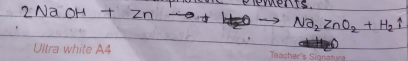 elements.
2NaOH + Zn → Na₂ZnO₂ + H₂↑
Ultra white A4
Teacher's Signature